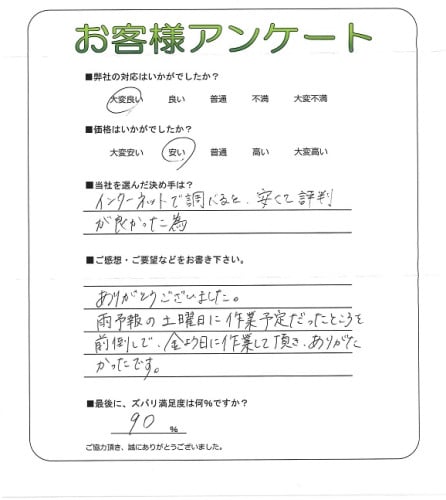 お客様アンケート
■弊社の対応はいかがでしたか?
大変良い 良い 普通 不満 大変不満
■価格はいかがでしたか?
大変安い 安い 普通 高い 大変高い
■当社を選んだ決め手は?
インターネットで調べると、安くて評判
が良かった為
■ご感想・ご要望などをお書き下さい。
ありがとうございました。
雨予報の土曜日に作業予定だったところを
前倒しで、金よう日に作業して頂き、ありがた
かったです。
■最後に、ズバリ満足度は何%ですか?
90 %
ご協力頂き、誠にありがとうございました。